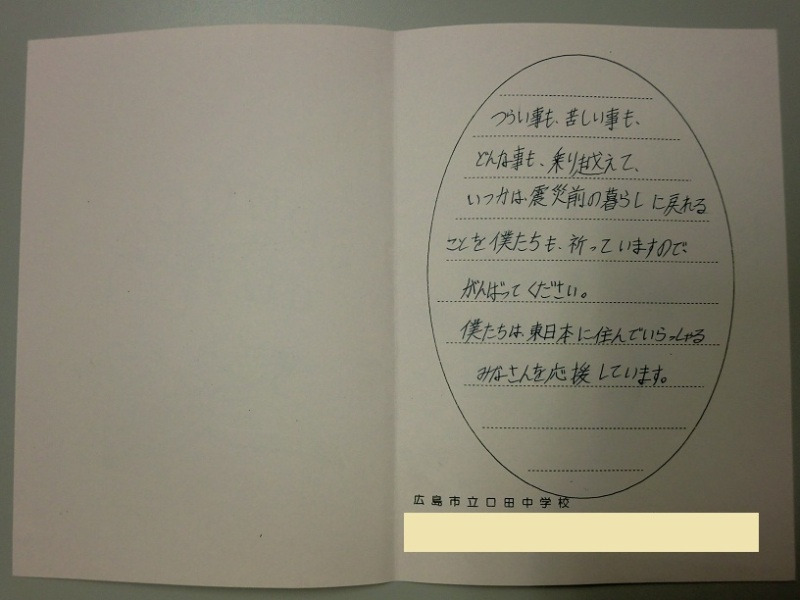 つらい事も、苦しい事も、
どんな事も、乗り越えて、
いつかは震災前の暮らしに戻れる
ことを僕たちも、祈っていますので、
がんばってください。
僕たちは、東日本に住んでいらっしゃる
みなさんを応援しています。
広島市立口田中学校